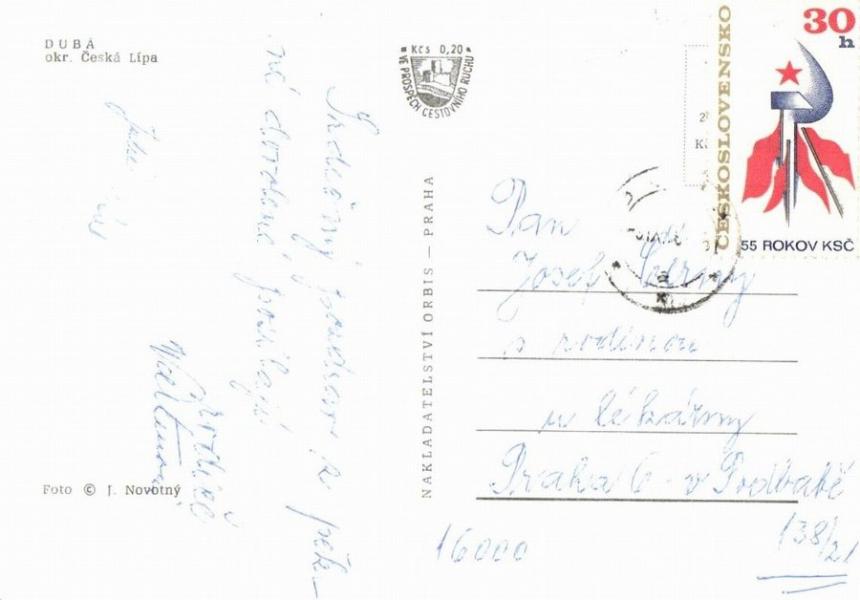 DUBÁ
okr. Česká Lípa
Kčs 0,20
VE PROSPĚCH CESTOVNÍHO RUCHU
Srdečný pozdrav z pěk-
né dovolené posílají
rodiče
Foto © J. Novotný
NAKLADATELSTVÍ ORBIS — PRAHA
ČESKOSLOVENSKO
30
h
55 ROKOV KSČ
Pan
Josef Černý
s rodinou
u lékárny
Praha 6 - v Podbabě
138/21
16000